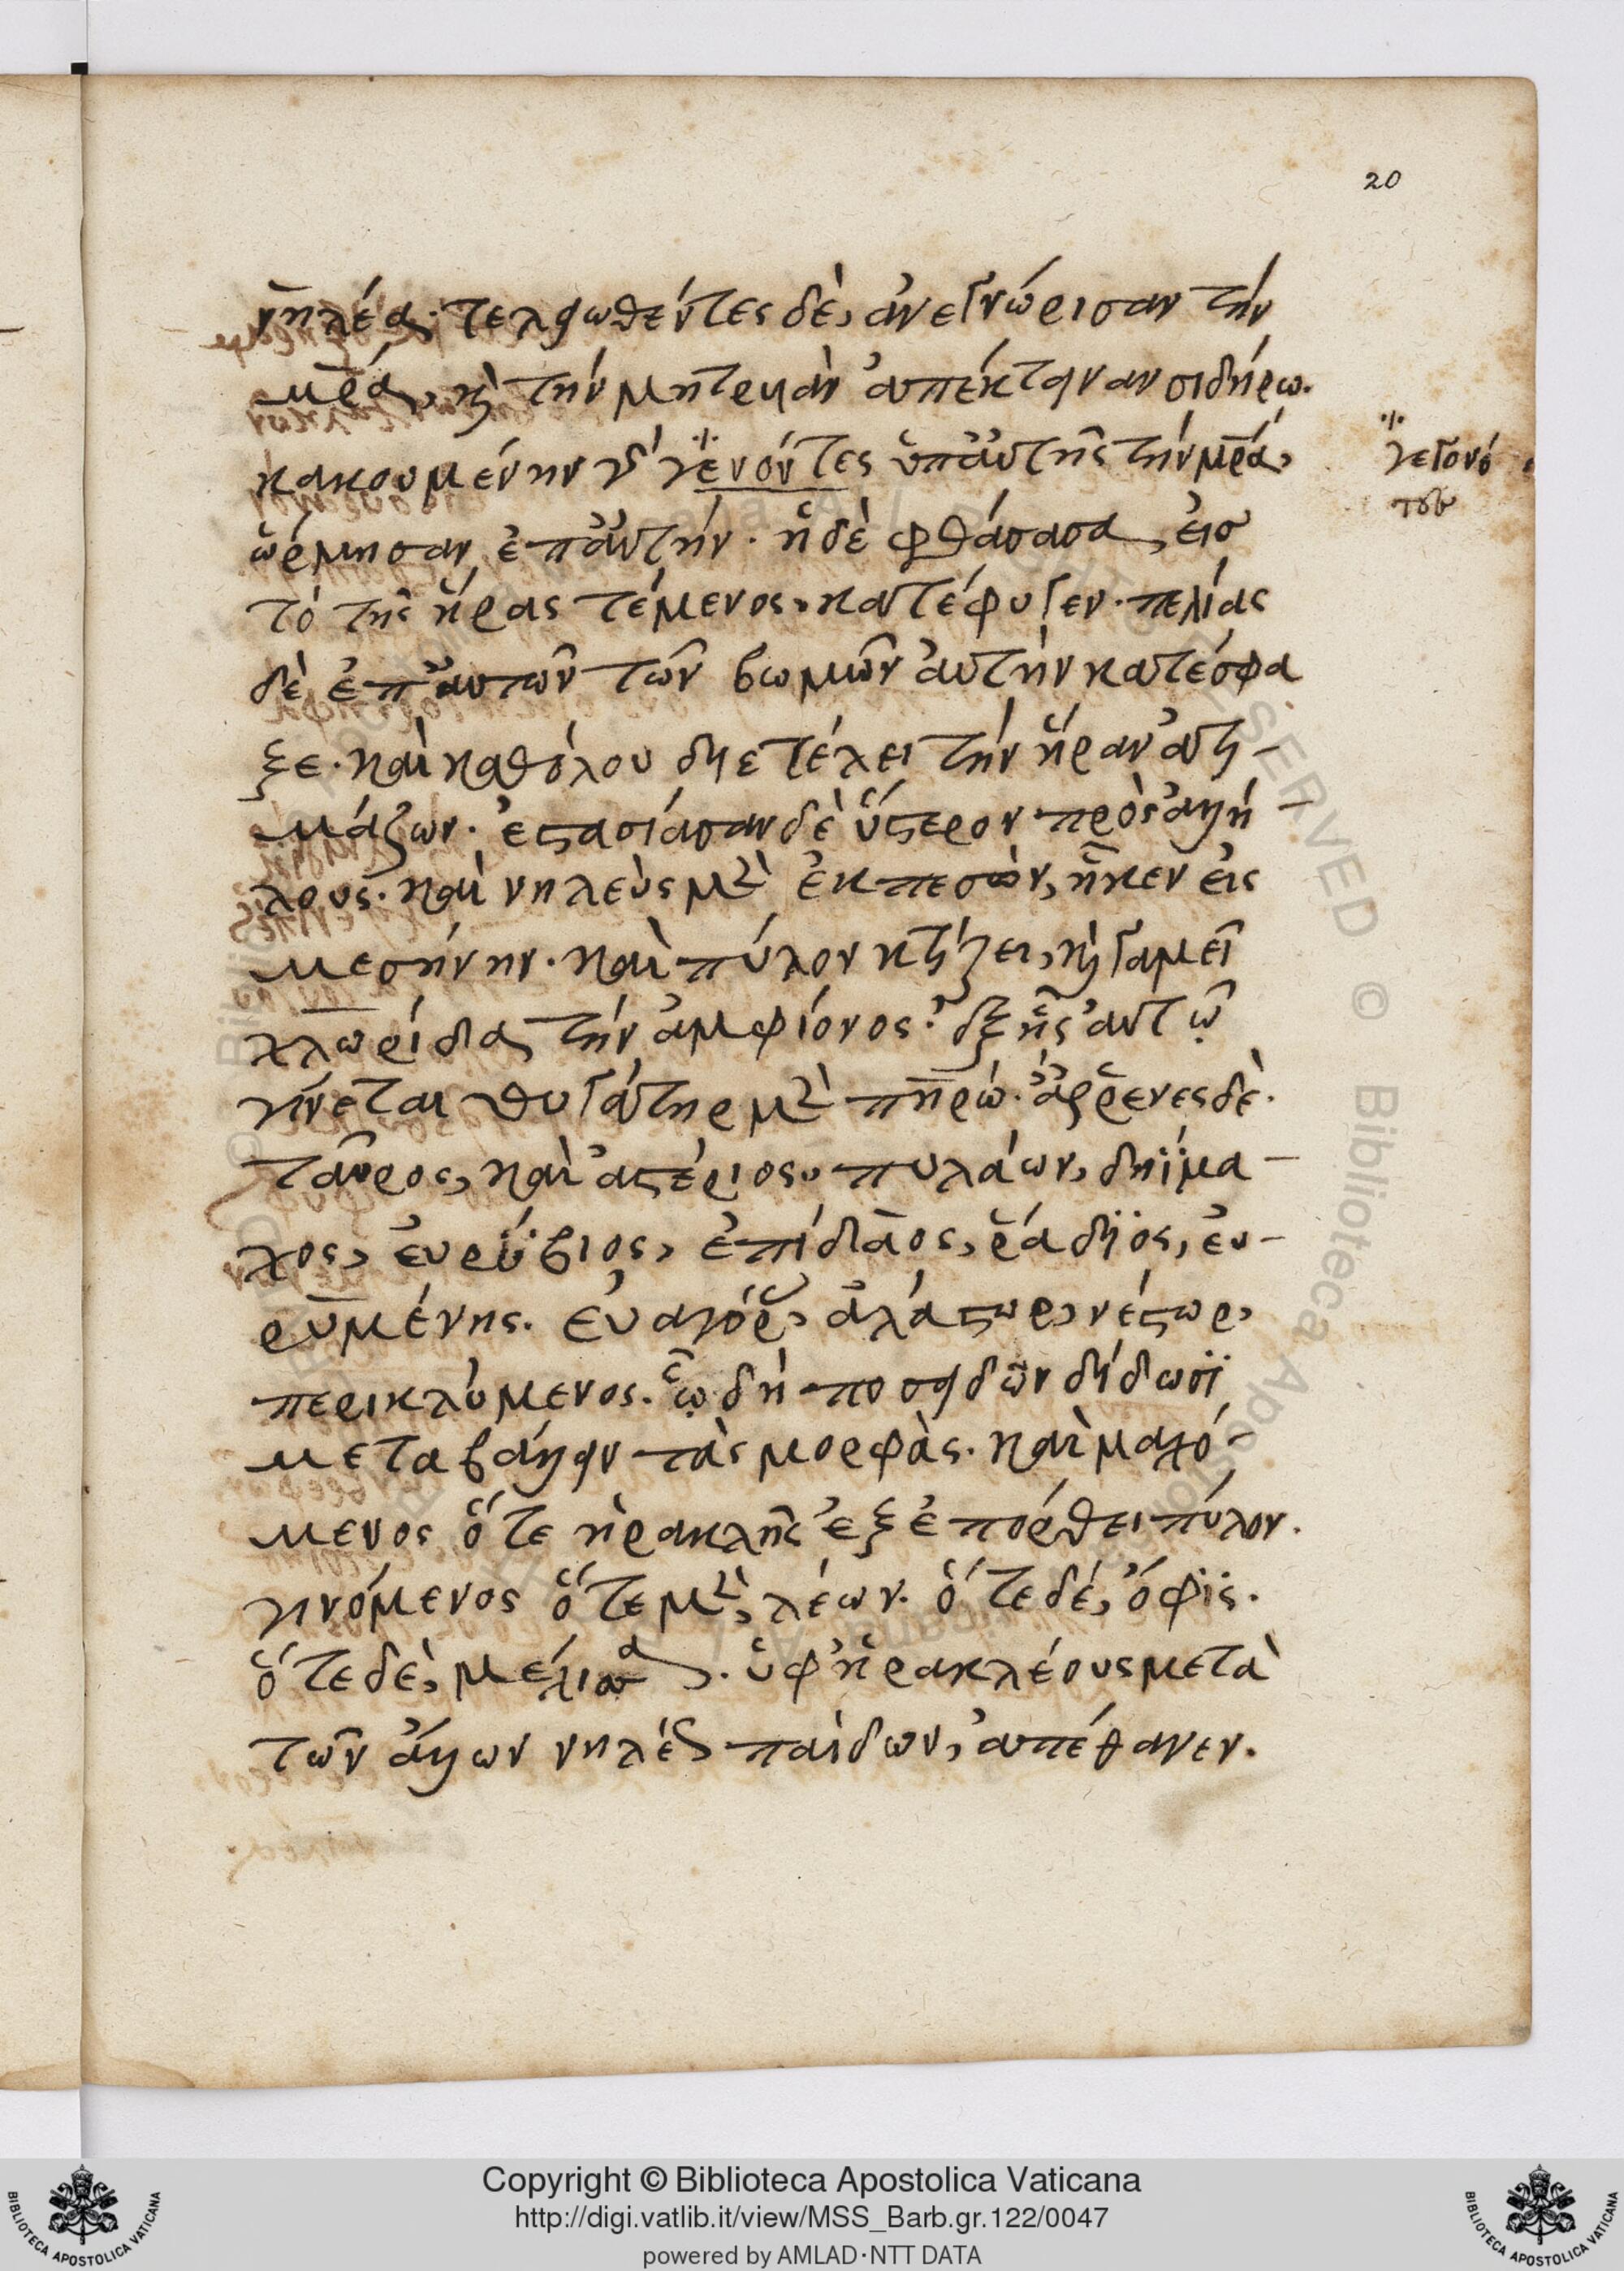 20
νηλέα· τελειωθέντες δὲ, ἀνεγνώρισαν τὴν
μρ̄α, καὶ τὴν μητριὰν ἀπέκτειναν σιδήρω.
κακουμένην γὰρ γενόντες ὑπ' αὐτῆς τὴν μρ̄α,
γεγονό
τες
ὥρμησαν ἐπ' αὐτήν· ἡ δὲ φθάσασα, εἰσ
τὸ τῆς ἥρας τέμενος, κατέφυγεν· πελίας
δὲ ἐπ' αὐτῶν τῶν βωμῶν αὐτὴν κατέσφα
ξε· καὶ καθόλου διετέλει τὴν ἥραν ἀτι-
μάζων· ἐστασίασαν δὲ ὕστερον πρὸς ἀλλή-
λους· καὶ νηλεὺς μὲν ἐκπεσὼν, ἧκεν εἰς
μεσήνην· καὶ πύλον κτίζει, καὶ γαμεῖ
χλωρίδα τὴν ἀμφίονος· ἐξ ἧς αὐτῶ
γίνεται θυγάτηρ μὲν πηρώ· ἄρρενες δὲ·
ταῦρος, καὶ ἀστέριος, πυλάων, δηΐμα-
χος, εὐρύβιος, ἐπίδιαος, ῥάδιος, εὐ-
ρυμένης. εὐαγόρας, ἀλάστωρ, νέστωρ,
περικλύμενος. ὧ δὴ ποσειδῶν δίδωσϊ
μεταβάλλειν τὰς μορφὰς. καὶ μαχό-
μενος ὅτε ἡρακλῆς ἐξεπόρθει πύλον.
γινόμενος ὅτε μὲν, λέων· ὅτε δέ, ὄφϊς.
ὅτε δὲ, μέλισσα. ὑφ' ἡρακλέους μετὰ
τῶν ἄλλων νηλέως παίδων, ἀπέθανεν.
Copyright © Biblioteca Apostolica Vaticana
http://digi.vatlib.it/view/MSS_Barb.gr.122/0047
powered by AMLAD·NTT DATA